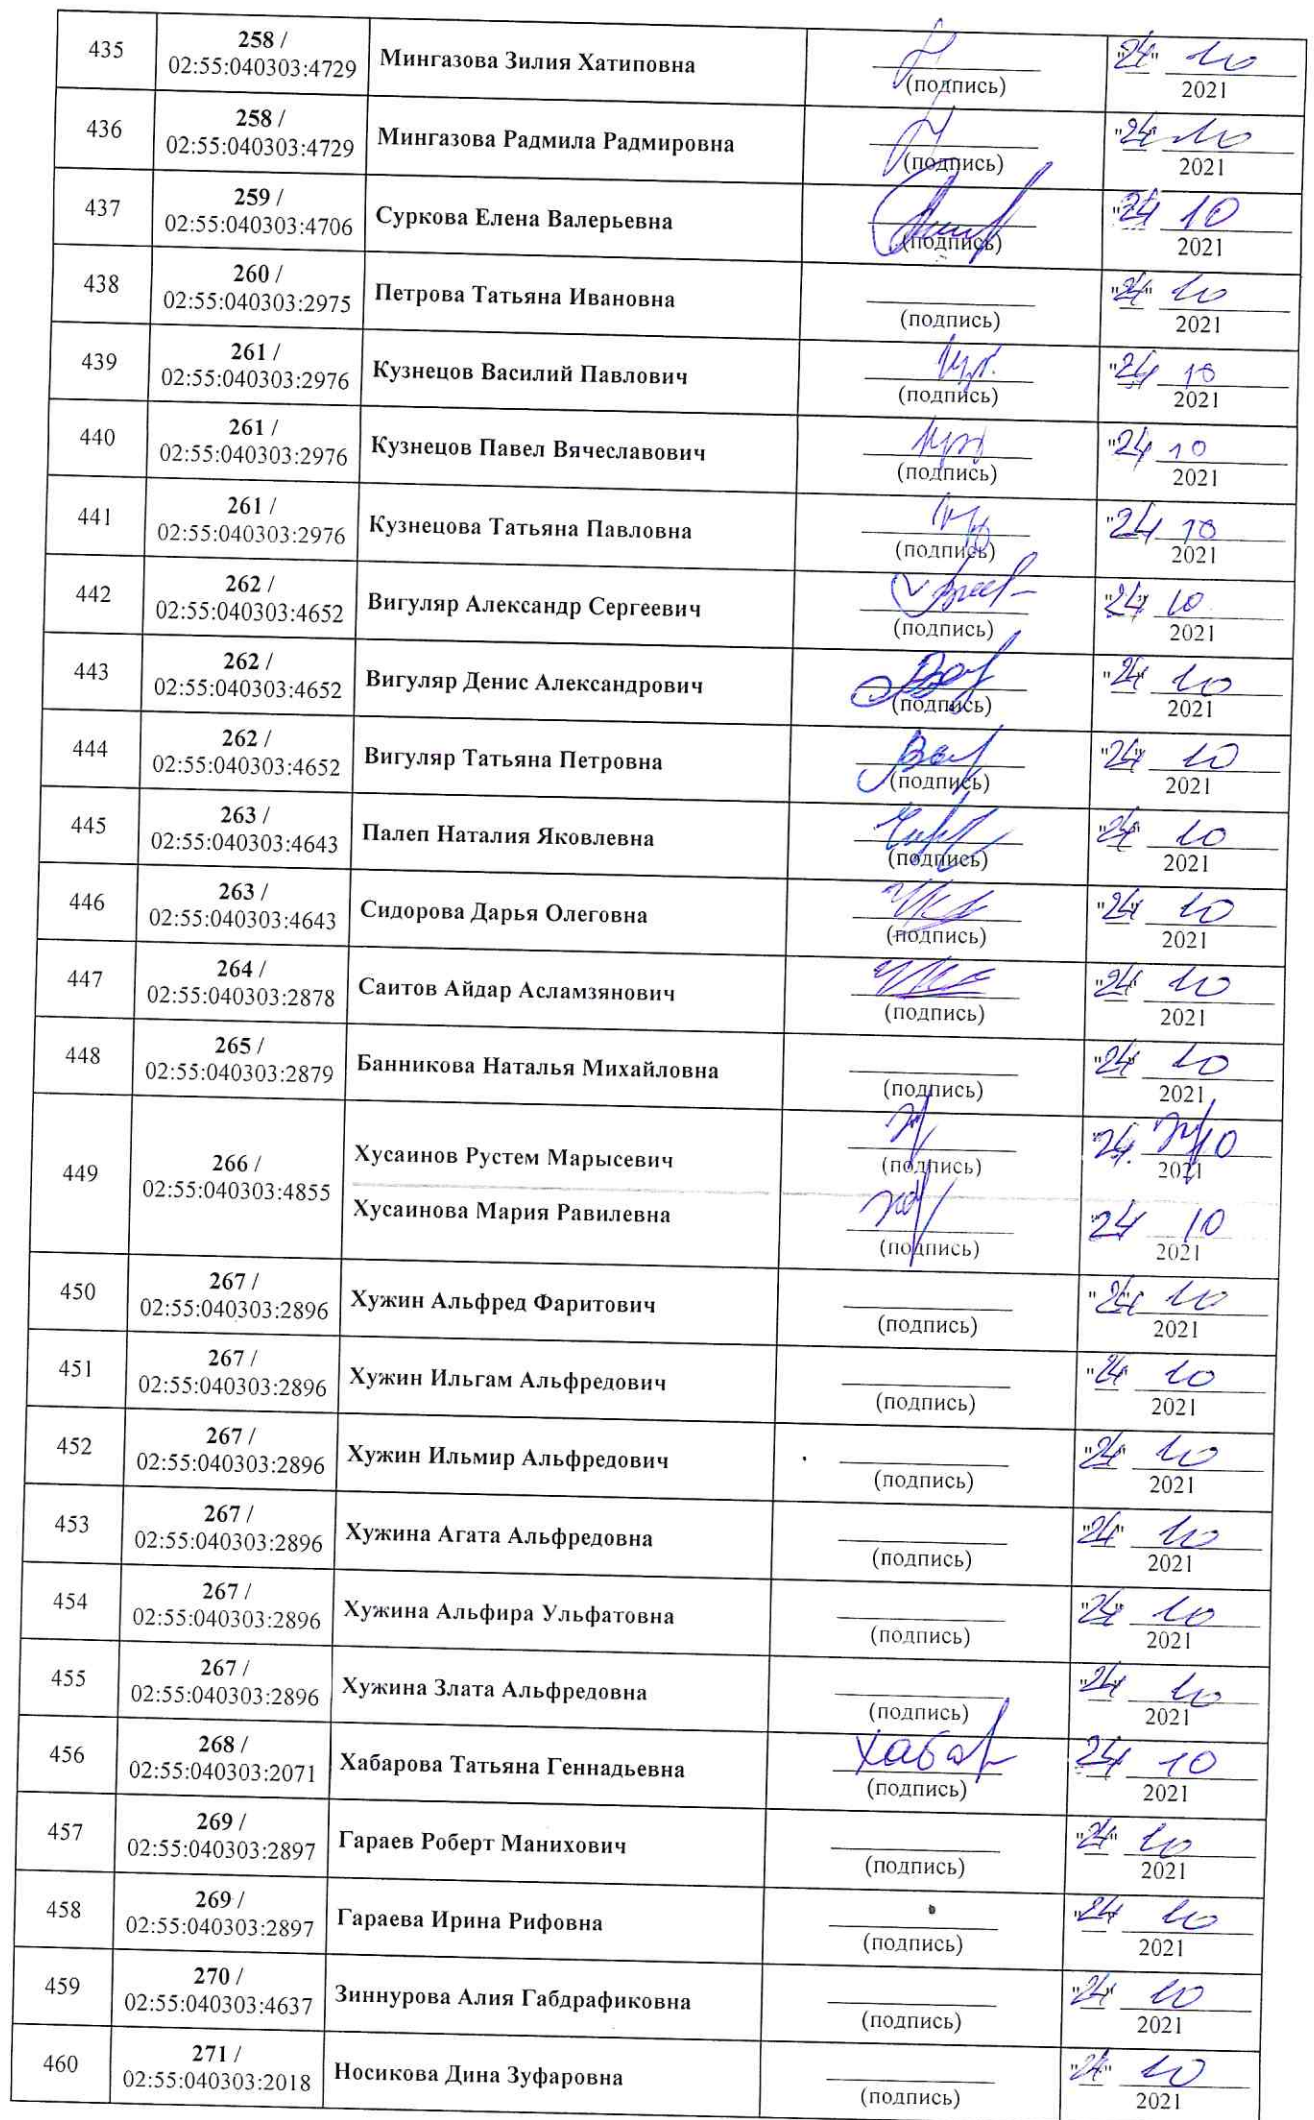 435
258 /
02:55:040303:4729
Мингазова Зилия Хатиповна
(подпись)
"24" 10
2021
436
258 /
02:55:040303:4729
Мингазова Радмила Радмировна
(подпись)
"24" 10
2021
437
259 /
02:55:040303:4706
Суркова Елена Валерьевна
(подпись)
"24 10
2021
438
260 /
02:55:040303:2975
Петрова Татьяна Ивановна
(подпись)
"24" 10
2021
439
261 /
02:55:040303:2976
Кузнецов Василий Павлович
(подпись)
"24 10
2021
440
261 /
02:55:040303:2976
Кузнецов Павел Вячеславович
(подпись)
"24 10
2021
441
261 /
02:55:040303:2976
Кузнецова Татьяна Павловна
(подпись)
"24 10
2021
442
262 /
02:55:040303:4652
Вигуляр Александр Сергеевич
(подпись)
"24" 10
2021
443
262 /
02:55:040303:4652
Вигуляр Денис Александрович
(подпись)
"24" 10
2021
444
262 /
02:55:040303:4652
Вигуляр Татьяна Петровна
(подпись)
"24" 10
2021
445
263 /
02:55:040303:4643
Палеп Наталия Яковлевна
(подпись)
"24" 10
2021
446
263 /
02:55:040303:4643
Сидорова Дарья Олеговна
(подпись)
"24" 10
2021
447
264 /
02:55:040303:2878
Саитов Айдар Асламзянович
(подпись)
"24" 10
2021
448
265 /
02:55:040303:2879
Банникова Наталья Михайловна
(подпись)
"24" 10
2021
449
266 /
02:55:040303:4855
Хусаинов Рустем Марысевич
(подпись)
"24. 10
2021
Хусаинова Мария Равилевна
(подпись)
"24 10
2021
450
267 /
02:55:040303:2896
Хужин Альфред Фаритович
(подпись)
"24" 10
2021
451
267 /
02:55:040303:2896
Хужин Ильгам Альфредович
(подпись)
"24" 10
2021
452
267 /
02:55:040303:2896
Хужин Ильмир Альфредович
(подпись)
"24" 10
2021
453
267 /
02:55:040303:2896
Хужина Агата Альфредовна
(подпись)
"24" 10
2021
454
267 /
02:55:040303:2896
Хужина Альфира Ульфатовна
(подпись)
"24" 10
2021
455
267 /
02:55:040303:2896
Хужина Злата Альфредовна
(подпись)
"24" 10
2021
456
268 /
02:55:040303:2071
Хабарова Татьяна Геннадьевна
Хабар
(подпись)
24 10
2021
457
269 /
02:55:040303:2897
Гараев Роберт Манихович
(подпись)
"24" 10
2021
458
269 /
02:55:040303:2897
Гараева Ирина Рифовна
(подпись)
"24" 10
2021
459
270 /
02:55:040303:4637
Зиннурова Алия Габдрафиковна
(подпись)
"24" 10
2021
460
271 /
02:55:040303:2018
Носикова Дина Зуфаровна
(подпись)
"24" 10
2021